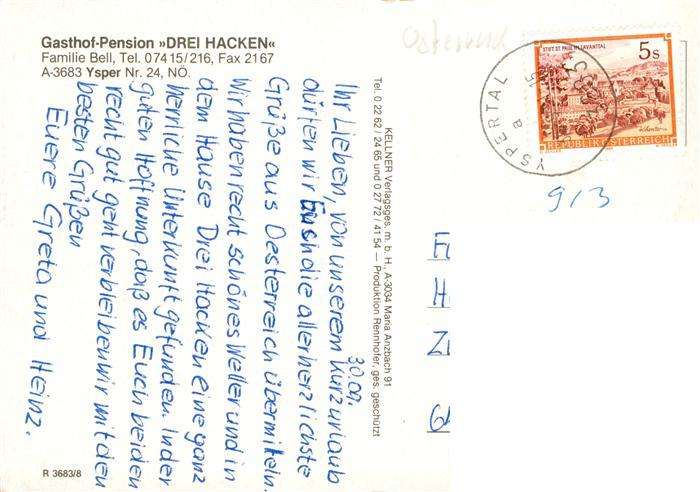 Gasthof-Pension »DREI HACKEN«
Familie Bell, Tel. 07415/216, Fax 2167
A-3683 Ysper Nr. 24, NÖ.
30.09.
Ihr Lieben, von unserem Kurzurlaub
dürfen wir Euch die allerherzlichste
Grüße aus Oesterreich übermitteln.
Wir haben recht schönes Wetter und in
dem Hause Drei Hacken eine ganz
herrliche Unterkunft gefunden. In der
guten Hoffnung, daß es Euch beiden
recht gut geht verbleiben wir mit den
besten Grüßen
Euere Greta und Heinz.
R 3683/8
KELLNER Verlagsges. m. b. H., A-3034 Maria Anzbach 91
Tel. 0 22 62 / 24 65 und 0 27 72 / 41 54 — Produktion Rennhofer, ges. geschützt
Österreich
STIFT ST. PAUL IM LAVANTTAL
5 S
REPUBLIK ÖSTERREICH
YSPERTAL
a
913
H
Z